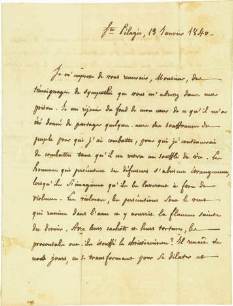 Ste Pélagie, 13 Janvier 1840.
Je m'empresse de vous remercier, Monsieur, des
témoignages de sympathie que vous m'adressez dans ma
prison. Je me réjouis du fond de mon cœur de ce qu'il m'a
été donné de partager quelques unes des souffrances du
peuple pour qui j'ai combattu, pour qui je continuerai
de combattre tant qu'il me restera un souffle de vie. Les
hommes qui persécutent ses défenseurs s'abusent étrangement,
lorsqu'ils s'imaginent qu'ils les
violence. La violence, les persécutions sont le vent
qui ranime dans l'âme et y nourrit la flamme sainte
du devoir. Avec leurs cachots et leurs tortures, les
ont-ils étouffé le christianisme? Il
de nos jours, en se transformant pour se dilater et